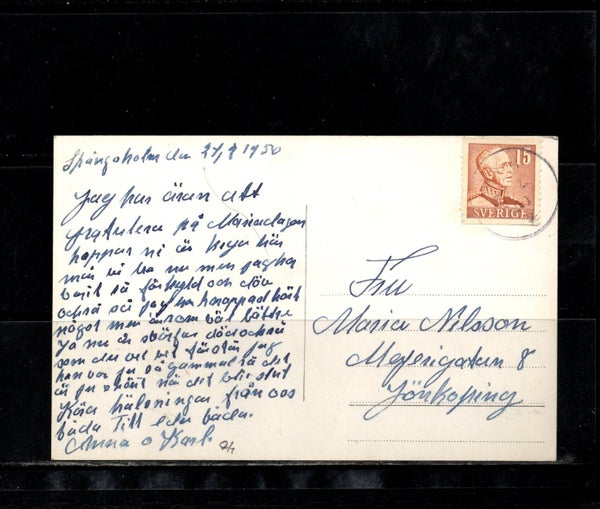 Spångaholm den 27/2 1950
Jag har äran att
gratulera på Mariadagen
hoppas ni är krya här
mår vi bra nu men jag har
varit så förkyld och döv
också så jag har knappad hört
något men är som väl bättre
Ja nu är svärfar död också
som du vet
han var ju så gammal så det
är ju skönt när det blir slut
Kära hälsningar från oss
båda Till eder båda.
Anna o Karl
15
SVERIGE
Fru
Maria Nilsson
Mejerigatan 8
Jönköping